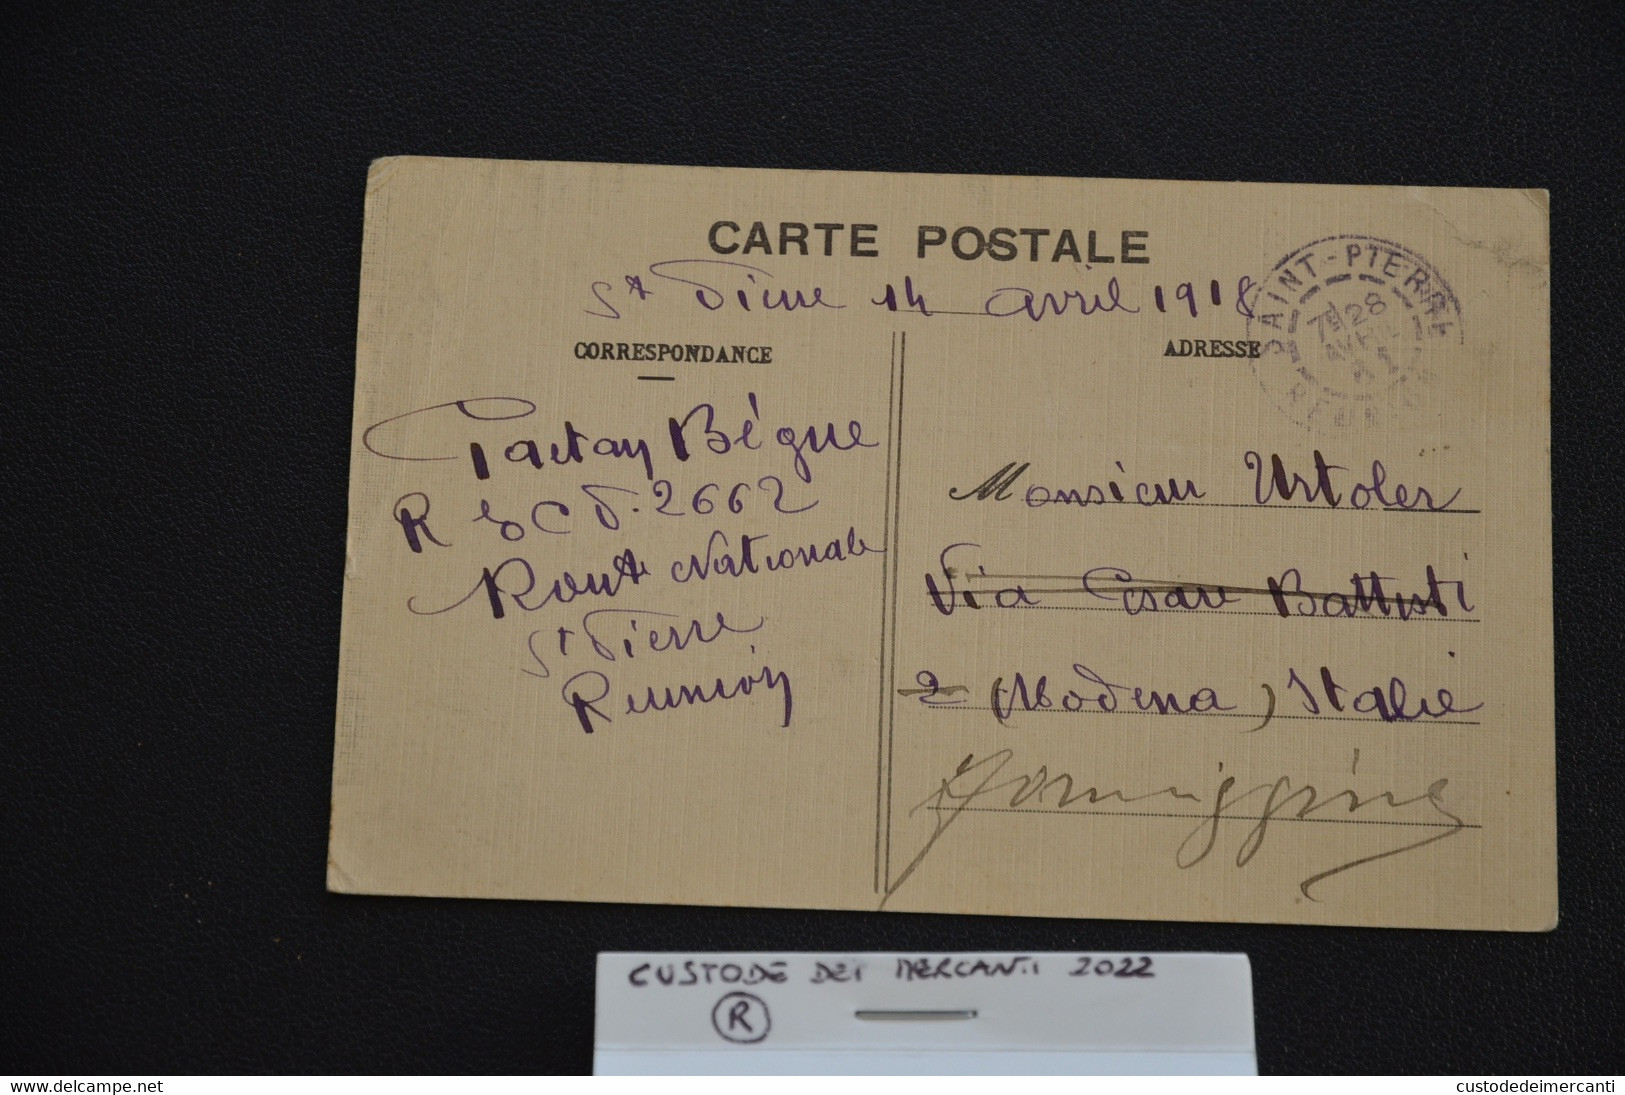 CARTE POSTALE
St Pierre 14 avril 1918
CORRESPONDANCE
Gaetan Bègue
R S C P. 2662
Route Nationale
St Pierre
Reunion
ADRESSE
SAINT-PIERRE
28
AVRIL
REUNION
Monsieur Ustoler
Via Cesare Battisti
2 (Modena) Italie
CUSTODE DEI MERCANTI 2022
R
delcampe.net
custodedeimercanti